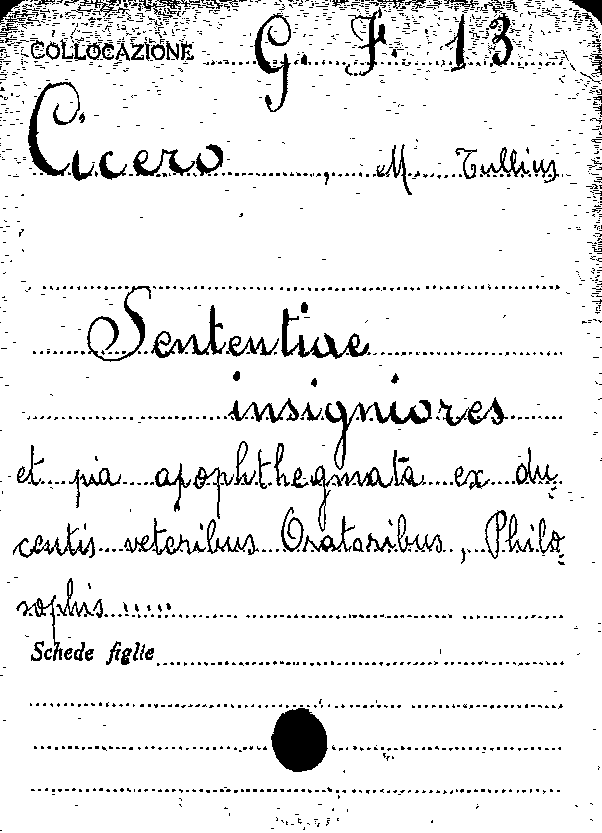 COLLOCAZIONE G. F. 13
Cicero, M. Tullius
Sententiae
insigniores
et pia apophthegmata ex du-
centis veteribus Oratoribus, Philo-
sophis .....
Schede figlie